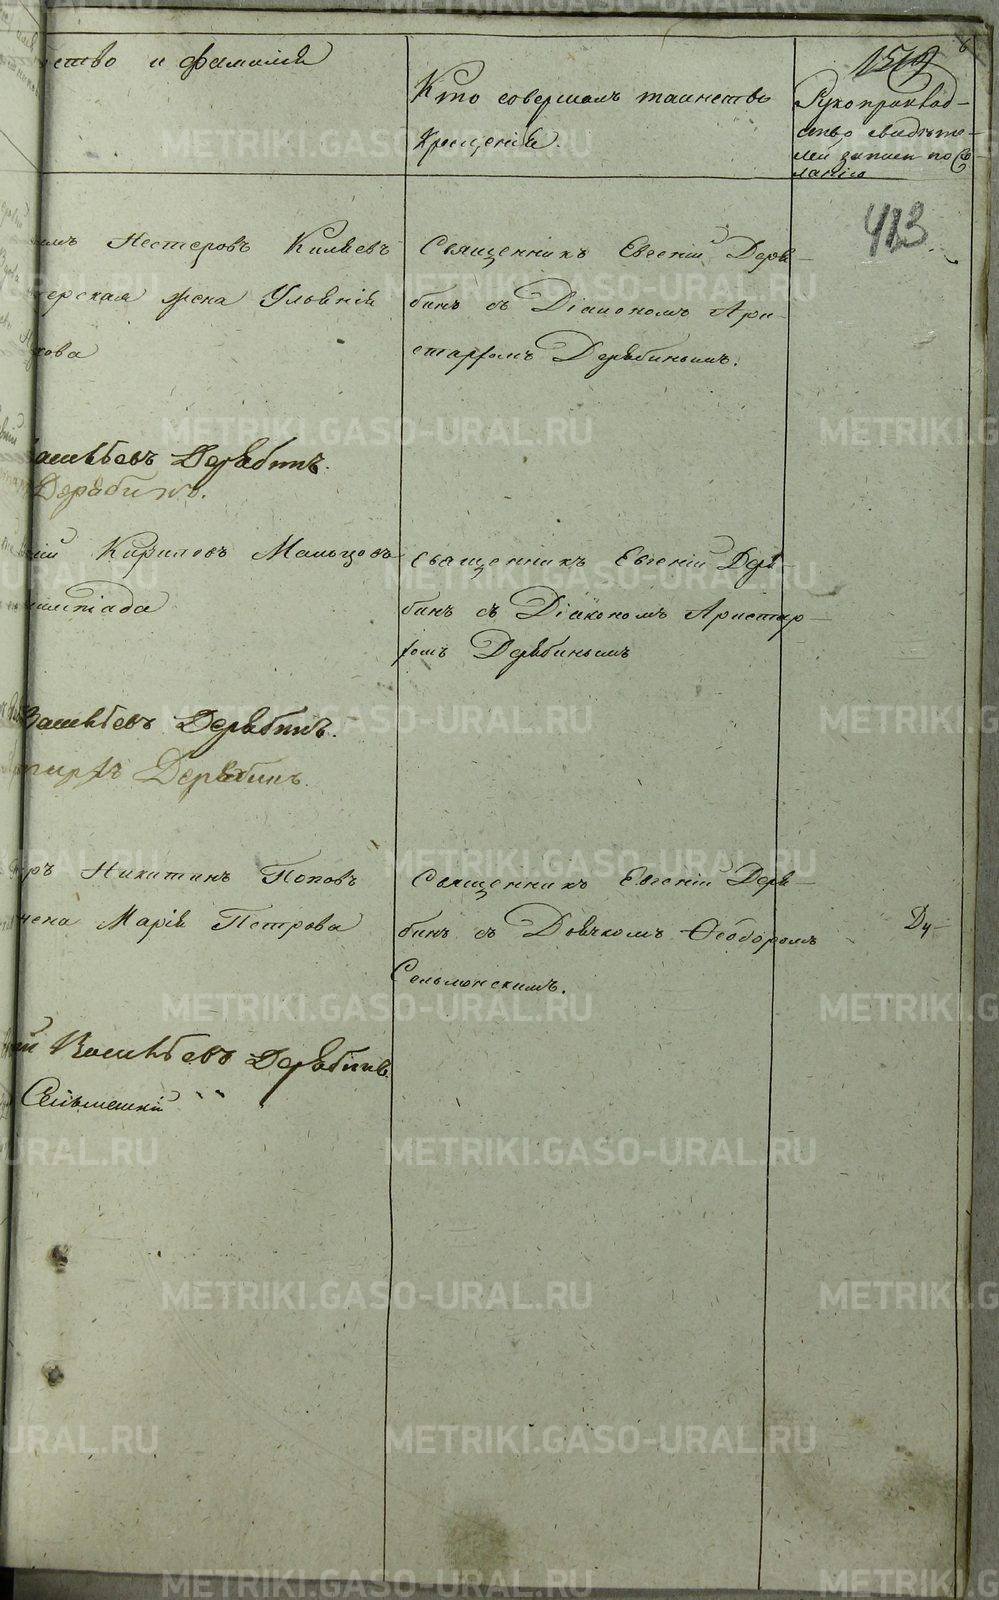 ство и фамилія
Кто совершалъ таинство
Крещенія.
Рукоприклад-
ство свидѣте-
лей записи по же-
ланію
1512
6
413
Нестеровъ Киляевъ
жена Ульянія
кова
Священникъ Евгеній Деря-
бинъ съ Діакономъ Ари-
стархомъ Дерябинымъ.
Васильевъ Дерябинъ.
Дерябинъ.
Кириловъ Мальцовъ
Священникъ Евгеній Деря-
бинъ съ Діакономъ Аристар-
хомъ Дерябинымъ
Васильевъ Дерябинъ.
Дерябинъ.
Никитинъ Поповъ
жена Марія Петрова
Священникъ Евгеній Деря-
бинъ съ Дьячкомъ Ѳеодоромъ
Сельменскимъ.
Ду-
Васильевъ Дерябинъ.
Сельменскій
METRIKI.GASO-URAL.RU